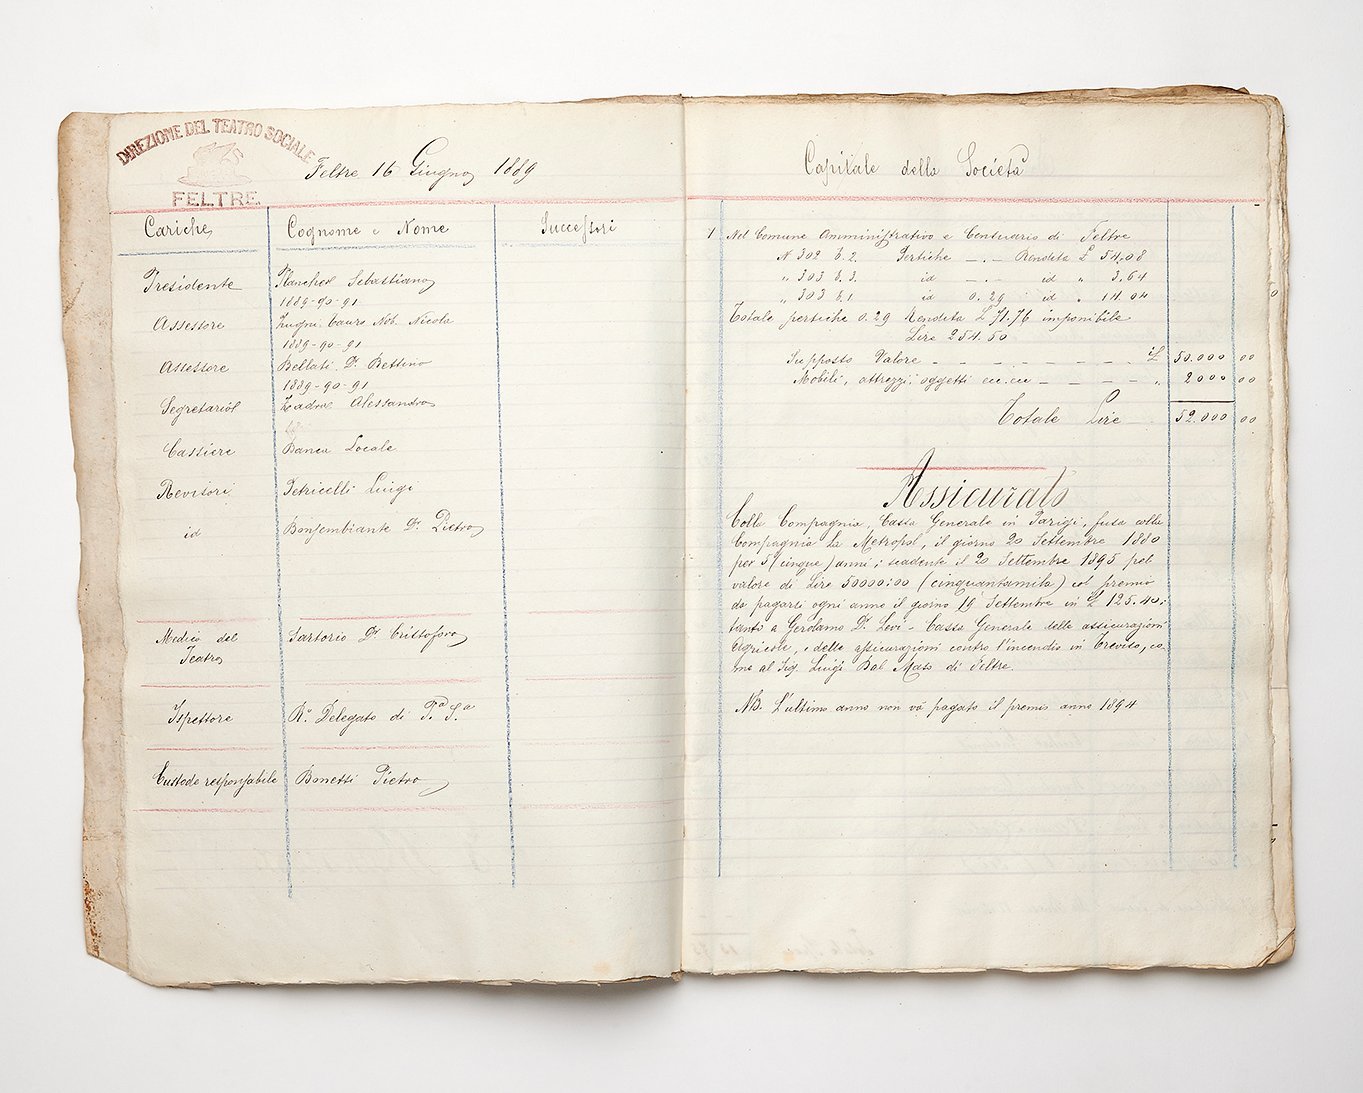 DIREZIONE DEL TEATRO SOCIALE
FELTRE
Feltre 16 Giugno 1889
Cariche Cognome e Nome Successori
Presidente Sebastiano
1889-90-91
Assessore Zugni Tauro Nob. Nicola
1889-90-91
Assessore Bellati Dr. Bettino
1889-90-91
Segretario Zadra Alessandro
Cassiere Banca Locale
Revisori Petricelli Luigi
id Bonsembiante Dr. Pietro
Medico del
Teatro
Sartorio Dr Cristoforo
Ispettore R.º Delegato di P.a S.a
Custode responsabile Bonetti Pietro
Capitale della Società
1 Nel Comune Amministrativo e Censuario di Feltre
N 302 b.2. Pertiche -.- Rendita £ 54,08
" 303 b.3. id -.- id " 3,64
" 303 b.1. id 0.29 id " 14.04
Totale pertiche 0.29 Rendita £ 71.76 imponibile
Lire 254.50
Supposto Valore - - - - - - - £ 50.000 00
Mobili, attrezzi, oggetti ecc.ecc - - - - " 2000 00
Totale Lire 52.000 00
Assicurato
Colla Compagnia, Cassa Generale in Parigi, fusa colla
Compagnia La Metropol, il giorno 20 Settembre 1880
per 5 (cinque) anni; scadente il 20 Settembre 1895 pel
valore di Lire 50000:00 (cinquantamila) col premio
da pagarsi ogni anno il giorno 19 Settembre in £ 125.40:
tanti a Gerolamo Dr. Levi - Cassa Generale delle assicurazioni
Agricole, e delle assicurazioni contro l'incendio in Treviso, co-
me al Sig Luigi Dal Mas di Feltre.
NB. L'ultimo anno non va pagato il premio anno 1894